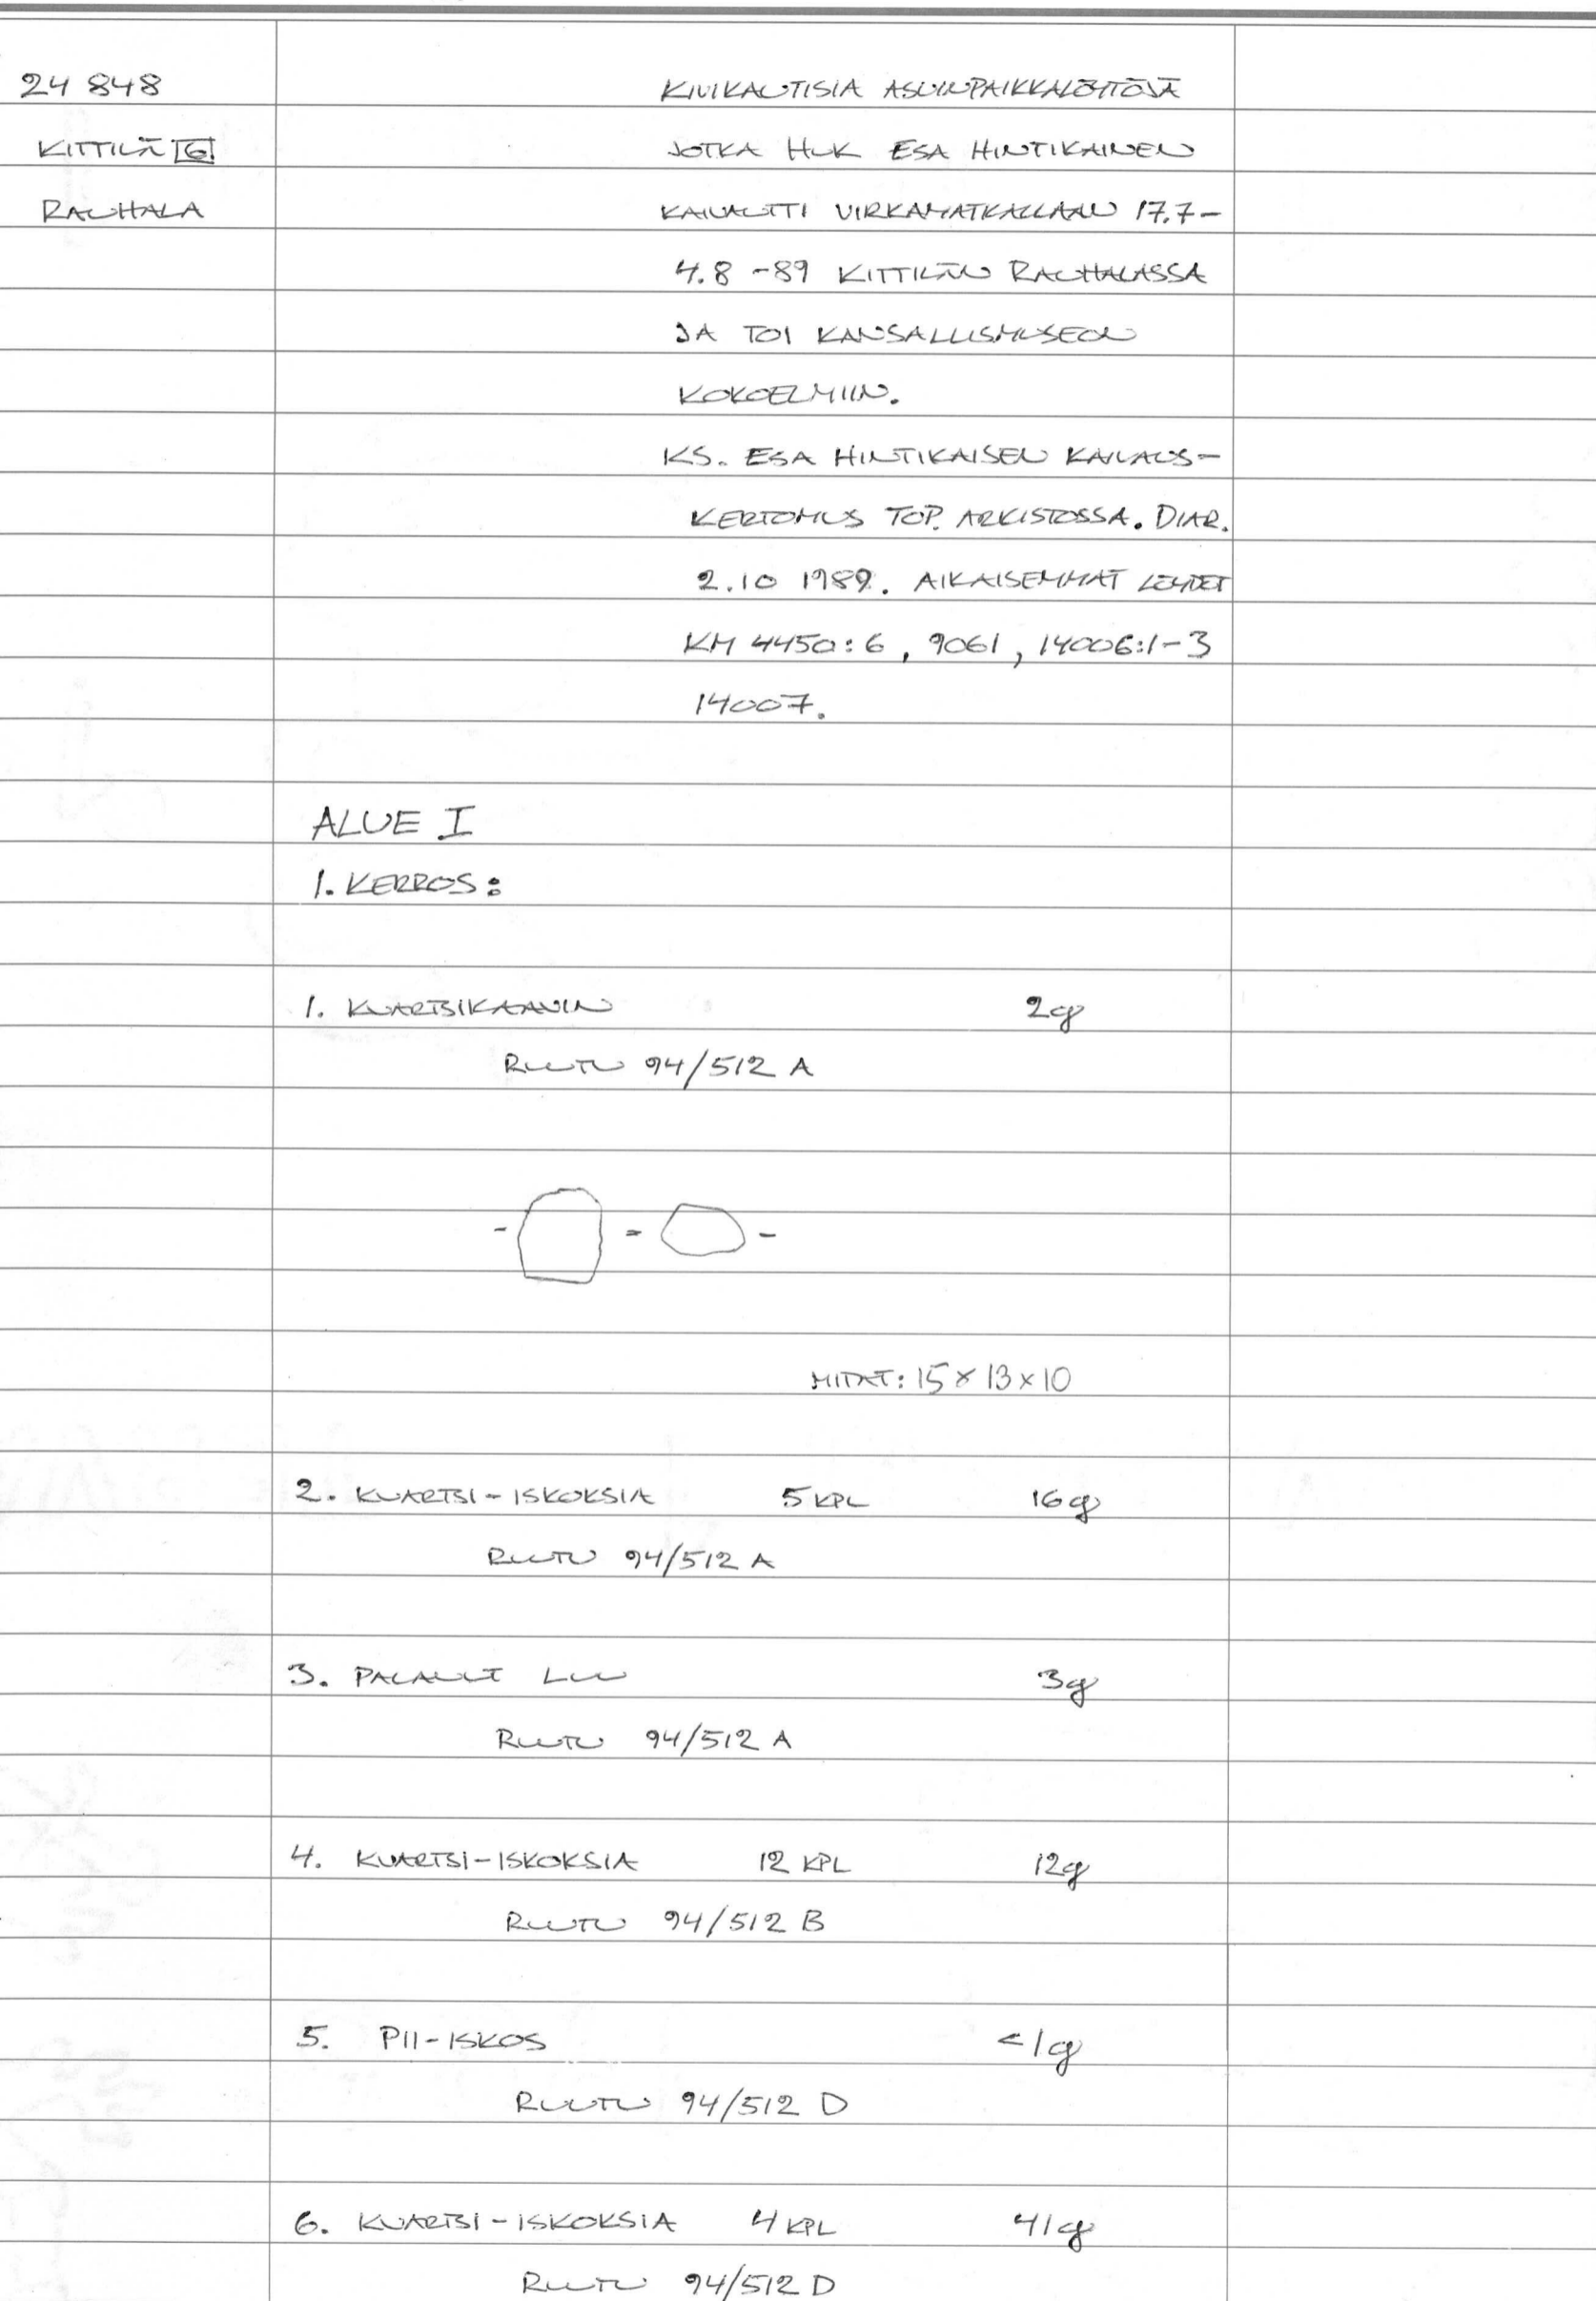 24 848
KIVIKAUTISIA ASUINPAIKKALÖYTÖJÄ
KITTILÄ 6
JOTKA HUK ESA HINTIKAINEN
RAUHALA
KAIVAUTTI VIRKAMATKALLAAN 17.7-
4.8 -89 KITTILÄN RAUHALASSA
JA TOI KANSALLISMUSEON
KOKOELMIIN.
KS. ESA HINTIKAISEN KAIVAUS-
KERTOMUS TOP. ARKISTOSSA. DIAR.
2.10 1989. AIKAISEMMAT LÖYDÖT
KM 4450:6, 9061, 14006:1-3
14007.
ALUE I
1. KERROS:
1. KVARTSIKAAVIN 2g
RUUTU 94/512 A
- = -
MITAT: 15 x 13 x 10
2. KVARTSI-ISKOKSIA 5 KPL 16g
RUUTU 94/512 A
3. PALANUT LUU 3g
RUUTU 94/512 A
4. KVARTSI-ISKOKSIA 12 KPL 12g
RUUTU 94/512 B
5. PII-ISKOS <1g
RUUTU 94/512 D
6. KVARTSI-ISKOKSIA 4 KPL 41g
RUUTU 94/512 D